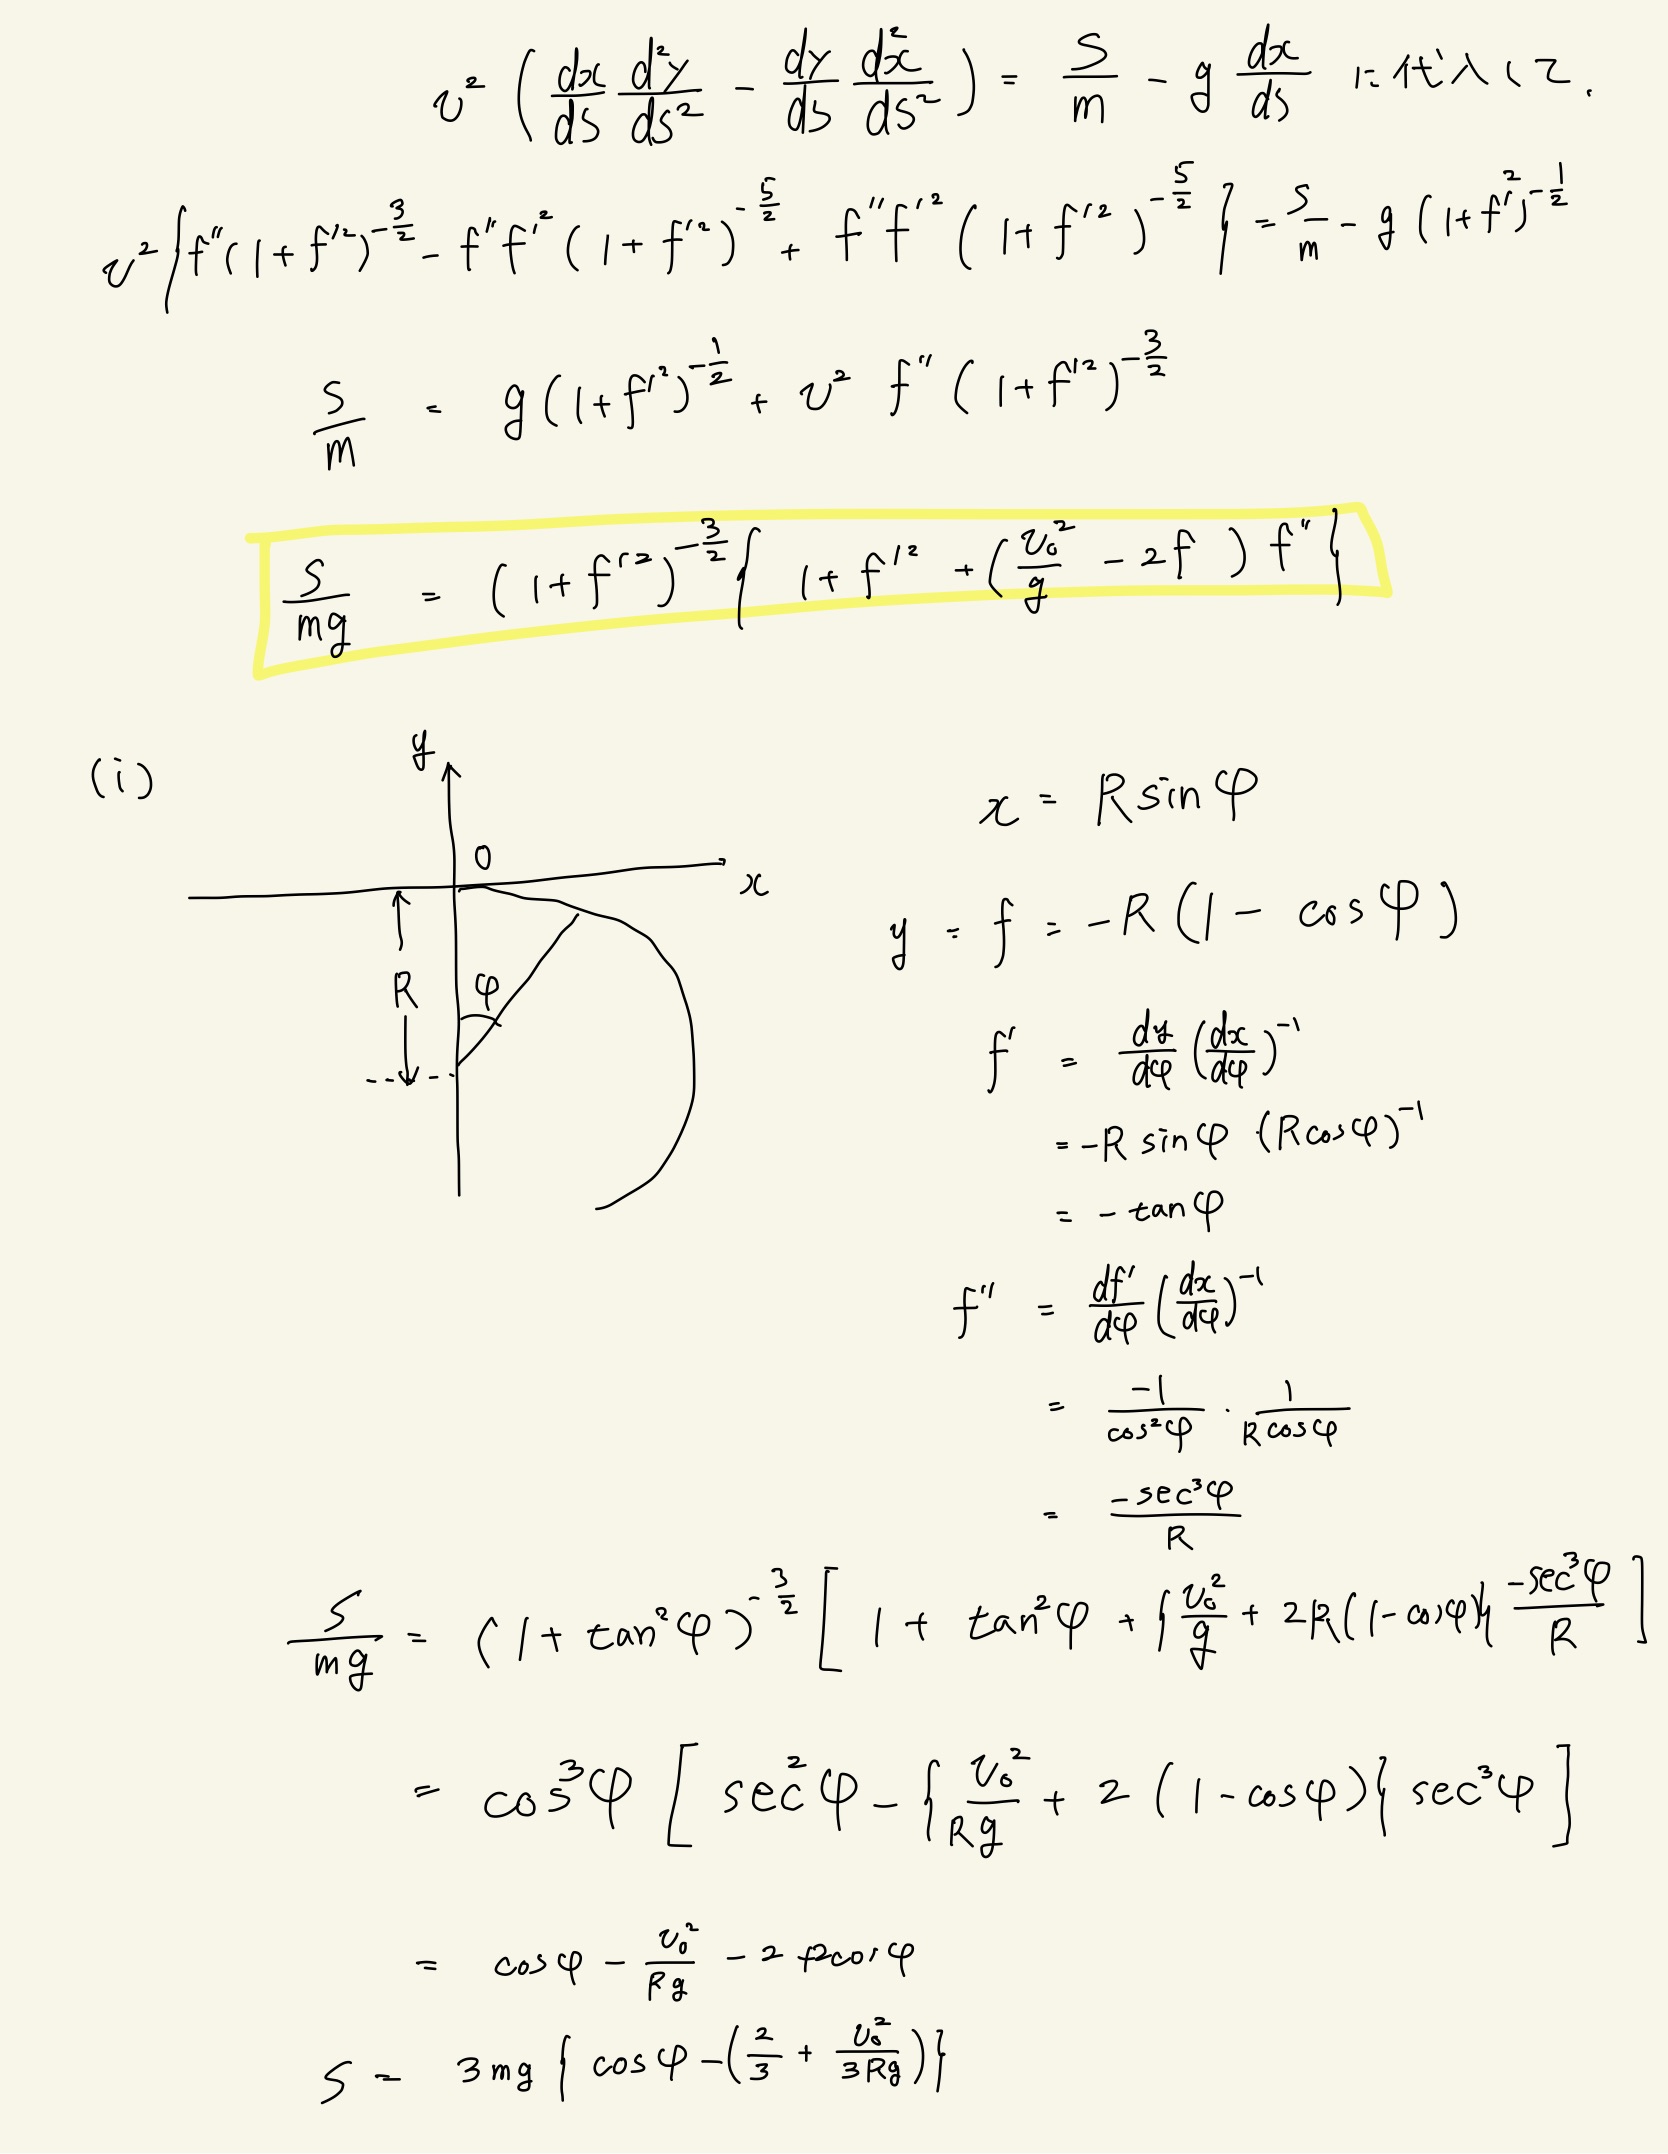 v² ( dx/ds d²y/ds² - dy/ds d²x/ds² ) = S/m - g dx/ds に代入して.
v² { f''(1+f'²)^{-3/2} - f''f'²(1+f'²)^{-5/2} + f''f'²(1+f'²)^{-5/2} } = S/m - g(1+f'²)^{-1/2}
S/m = g(1+f'²)^{-1/2} + v² f''(1+f'²)^{-3/2}
S/mg = (1+f'²)^{-3/2} { 1+f'² + (v₀²/g - 2f) f'' }
(i)
y
0
x
R
φ
x = R sin φ
y = f = -R(1 - cos φ)
f' = dy/dφ (dx/dφ)^{-1}
= -R sin φ · (R cos φ)^{-1}
= - tan φ
f'' = df'/dφ (dx/dφ)^{-1}
= -1/cos²φ · 1/R cos φ
= -sec³φ/R
S/mg = (1 + tan²φ)^{-3/2} [ 1 + tan²φ + { v₀²/g + 2R(1-cosφ) } -sec³φ/R ]
= cos³φ [ sec²φ - { v₀²/Rg + 2(1-cosφ) } sec³φ ]
= cos φ - v₀²/Rg - 2 + 2cos φ
S = 3mg { cos φ - ( 2/3 + v₀²/3Rg ) }